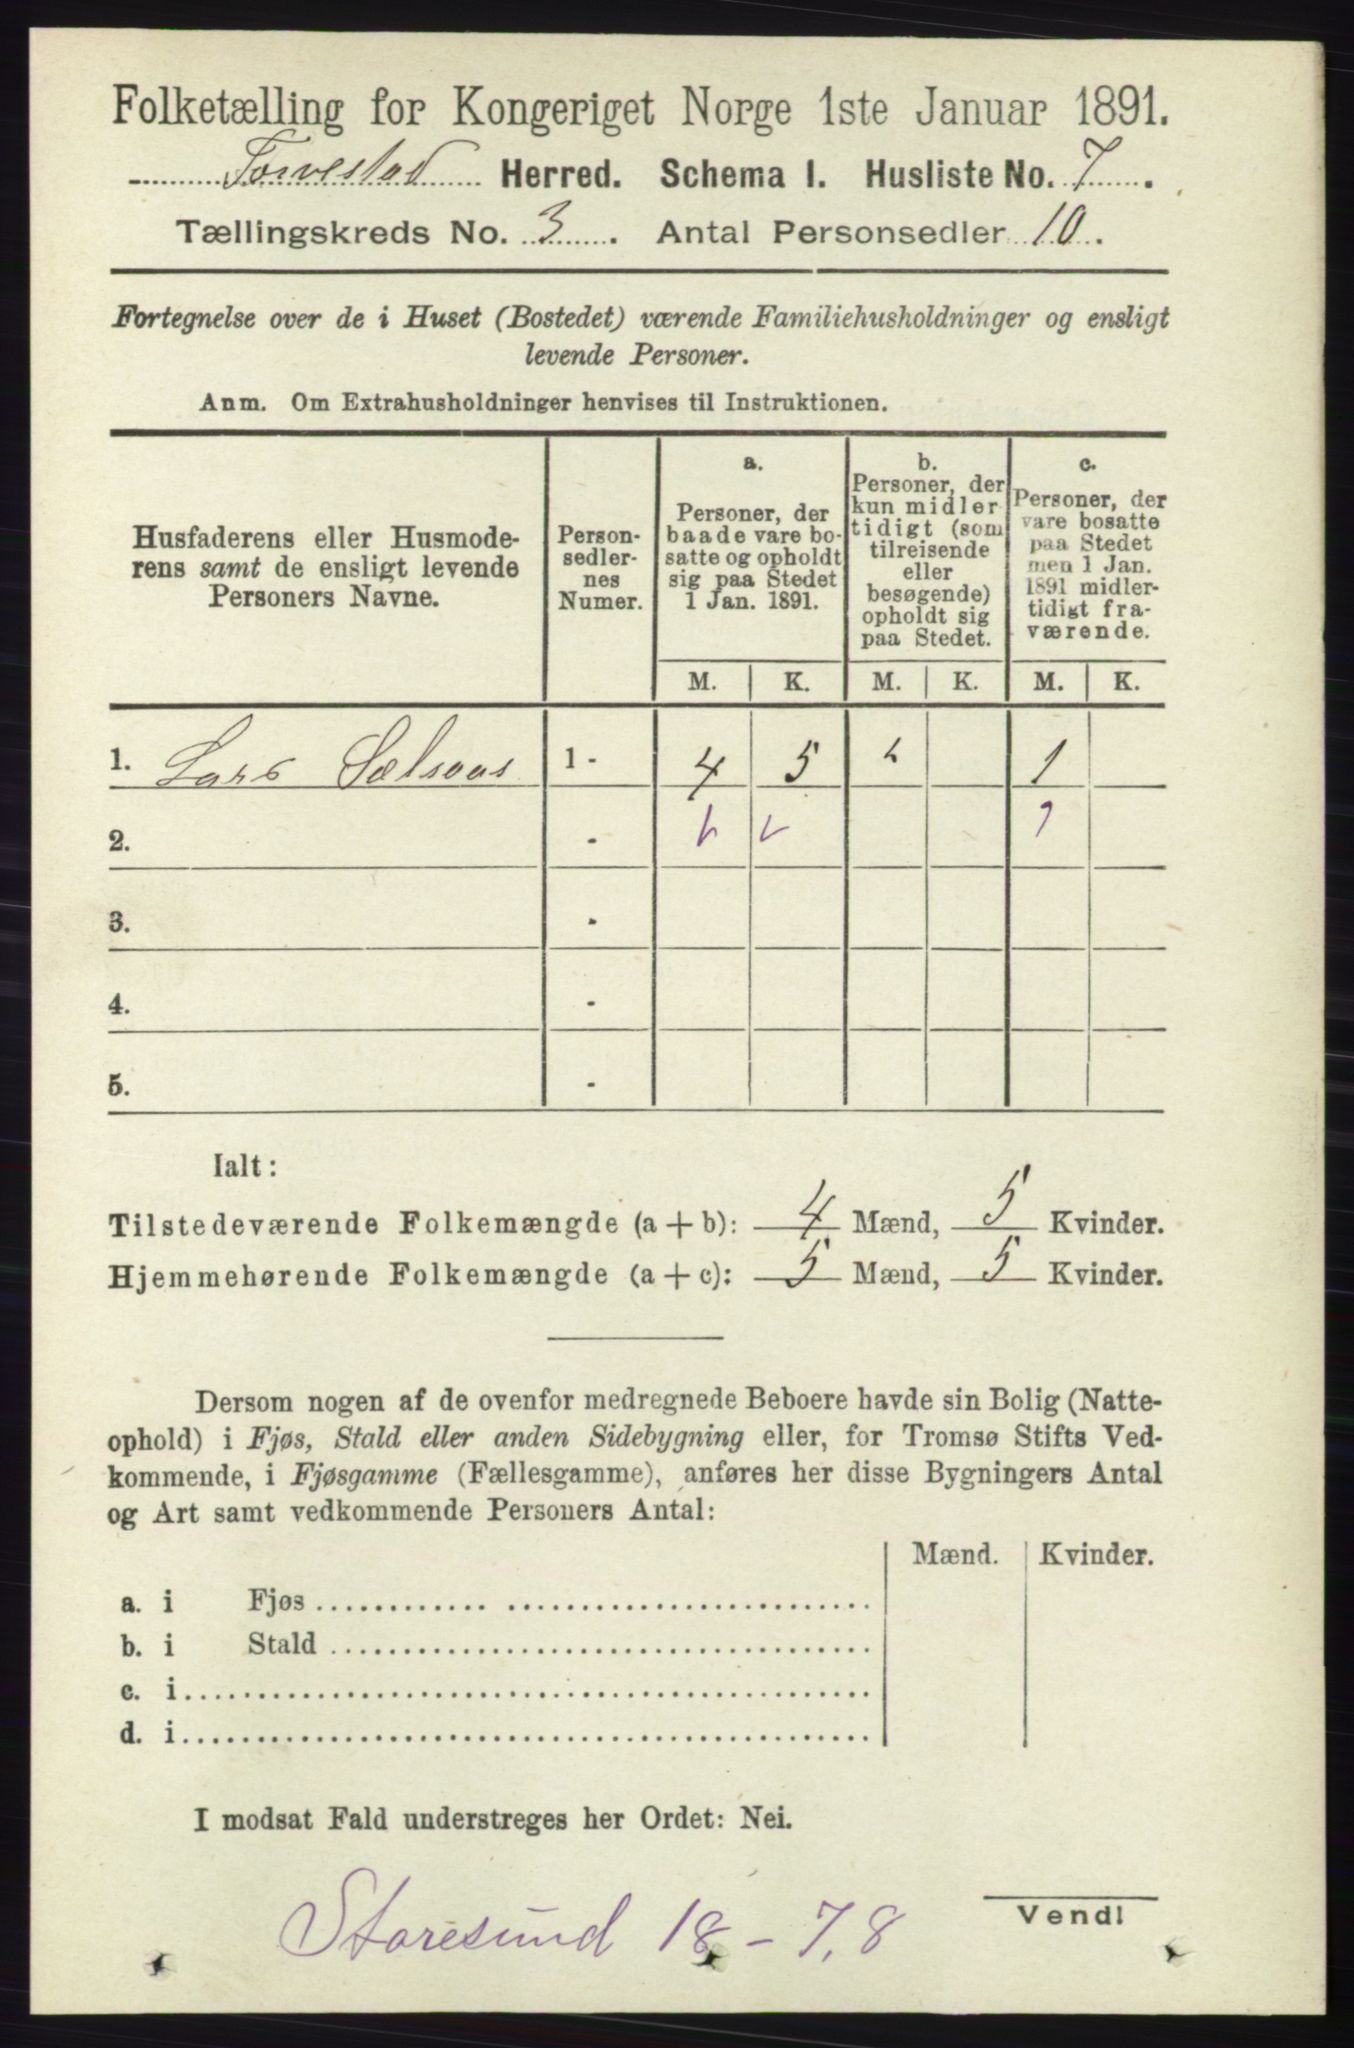 Folketælling for Kongeriget Norge 1ste Januar 1891.
Torvestad Herred. Schema I. Husliste No. 7.
Tællingskreds No. 3. Antal Personsedler 10.
Fortegnelse over de i Huset (Bostedet) værende Familiehusholdninger og ensligt
levende Personer.
Anm. Om Extrahusholdninger henvises til Instruktionen.
Husfaderens eller Husmode-
rens samt de ensligt levende
Personers Navne.
Person-
sedler-
nes
Numer.
a.
Personer, der
baade vare bo-
satte og opholdt
sig paa Stedet
1 Jan. 1891.
b.
Personer, der
kun midler
tidigt (som
tilreisende
eller
besøgende)
opholdt sig
paa Stedet.
c.
Personer, der
vare bosatte
paa Stedet
men 1 Jan.
1891 midler-
tidigt fra-
værende.
M. K. M. K. M. K.
1. Lars 1 - 4 5 1
2. - 1
3. -
4. -
5. -
Ialt:
Tilstedeværende Folkemængde (a + b): 4 Mænd, 5 Kvinder.
Hjemmehørende Folkemængde (a + c): 5 Mænd, 5 Kvinder.
Dersom nogen af de ovenfor medregnede Beboere havde sin Bolig (Natte-
ophold) i Fjøs, Stald eller anden Sidebygning eller, for Tromsø Stifts Ved-
kommende, i Fjøsgamme (Fællesgamme), anføres her disse Bygningers Antal
og Art samt vedkommende Personers Antal:
Mænd. Kvinder.
a. i Fjøs
b. i Stald
c. i
d. i
I modsat Fald understreges her Ordet: Nei.
Storesund 18 - 7,8
Vend!